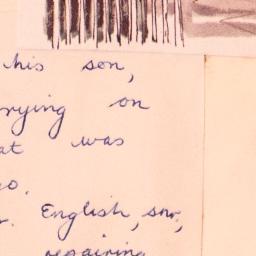 his son,
rying on
at was
o.
. English, snr,
repairing